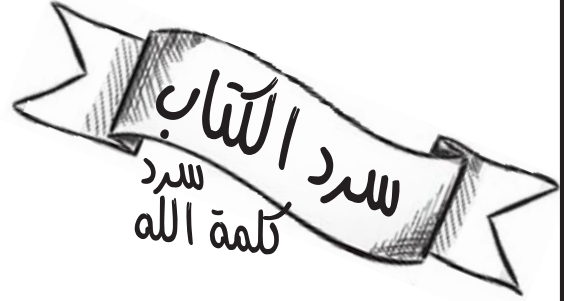 سرد الكتاب
سرد
كلمة الله